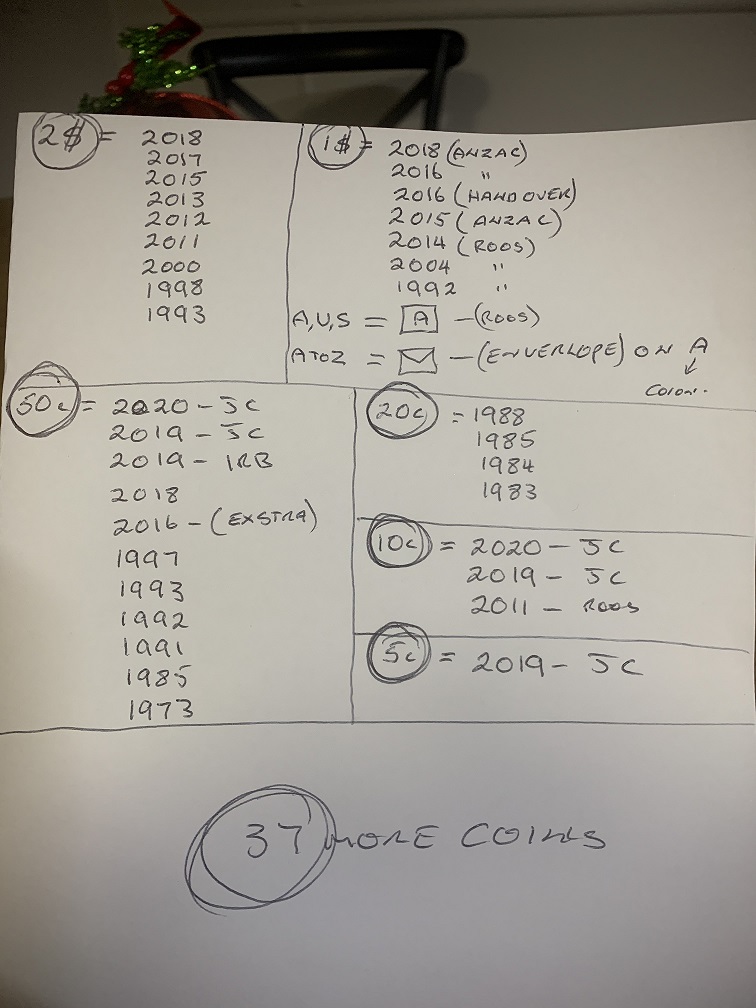 2$ = 2018
2017
2015
2013
2012
2011
2000
1998
1993
1$ = 2018 (ANZAC)
2016 "
2016 (HAND OVER)
2015 (ANZAC)
2014 (ROOS)
2004 "
1992 "
A,U,S = A - (ROOS)
A TO Z = - (ENVERLOPE) ON A
50c = 2020 - JC
2019 - JC
2019 - IRB
2018
2016 - (EXSTRA)
1997
1993
1992
1991
1985
1973
20c = 1988
1985
1984
1983
10c = 2020 - JC
2019 - JC
2011 - ROOS
5c = 2019 - JC
37 MORE COINS